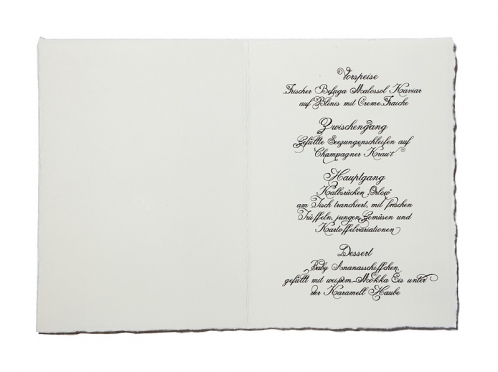 Vorspeise
Frischer Beluga Malossol Kaviar
auf Blinis mit Creme Fraiche
Zwischengang
Gefüllte Seezungenschleifen auf
Champagner Kraut
Hauptgang
Kalbsrücken "Orlow"
am Tisch tranchiert, mit frischen
Trüffeln, jungen Gemüsen und
Kartoffelvariationen
Dessert
Baby Ananasschiffchen
gefüllt mit weißem Mokka Eis unter
der Karamell Haube